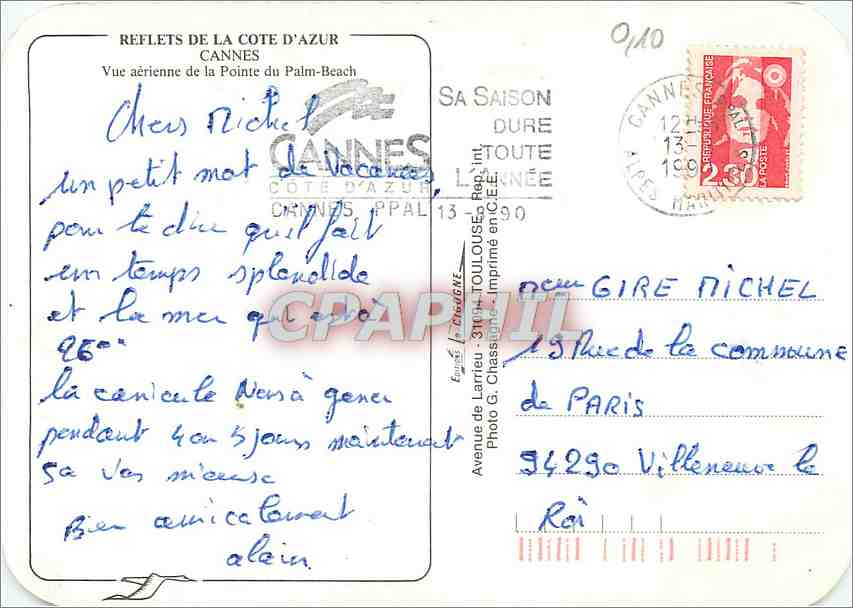 REFLETS DE LA COTE D'AZUR
CANNES
Vue aérienne de la Pointe du Palm-Beach
Chers Michel
un petit mot de Vacances,
pour te dire qu'il fait
un temps splendide
et la mer qui est à
26°
la canicule Nous à gener
pendant 4 ou 5 jours maintenant
sa vas mieuse
Bien amicalement
alain.
CANNES
COTE D'AZUR
CANNES PPAL 13-8-90
SA SAISON
DURE
TOUTE
L'ANNÉE
0,10
CANNES PPAL
12H
13-
199
ALPES MARITIMES
REPUBLIQUE FRANÇAISE
2,30
LA POSTE
Editions La CIGOGNE
Avenue de Larrieu - 31094 TOULOUSE - Rep. Int.
Photo G. Chassagne - Imprimé en C.E.E.
CPAPHIL
GIRE MICHEL
19 Rue de la commune
de PARIS
94290 Villeneuve le
Roi